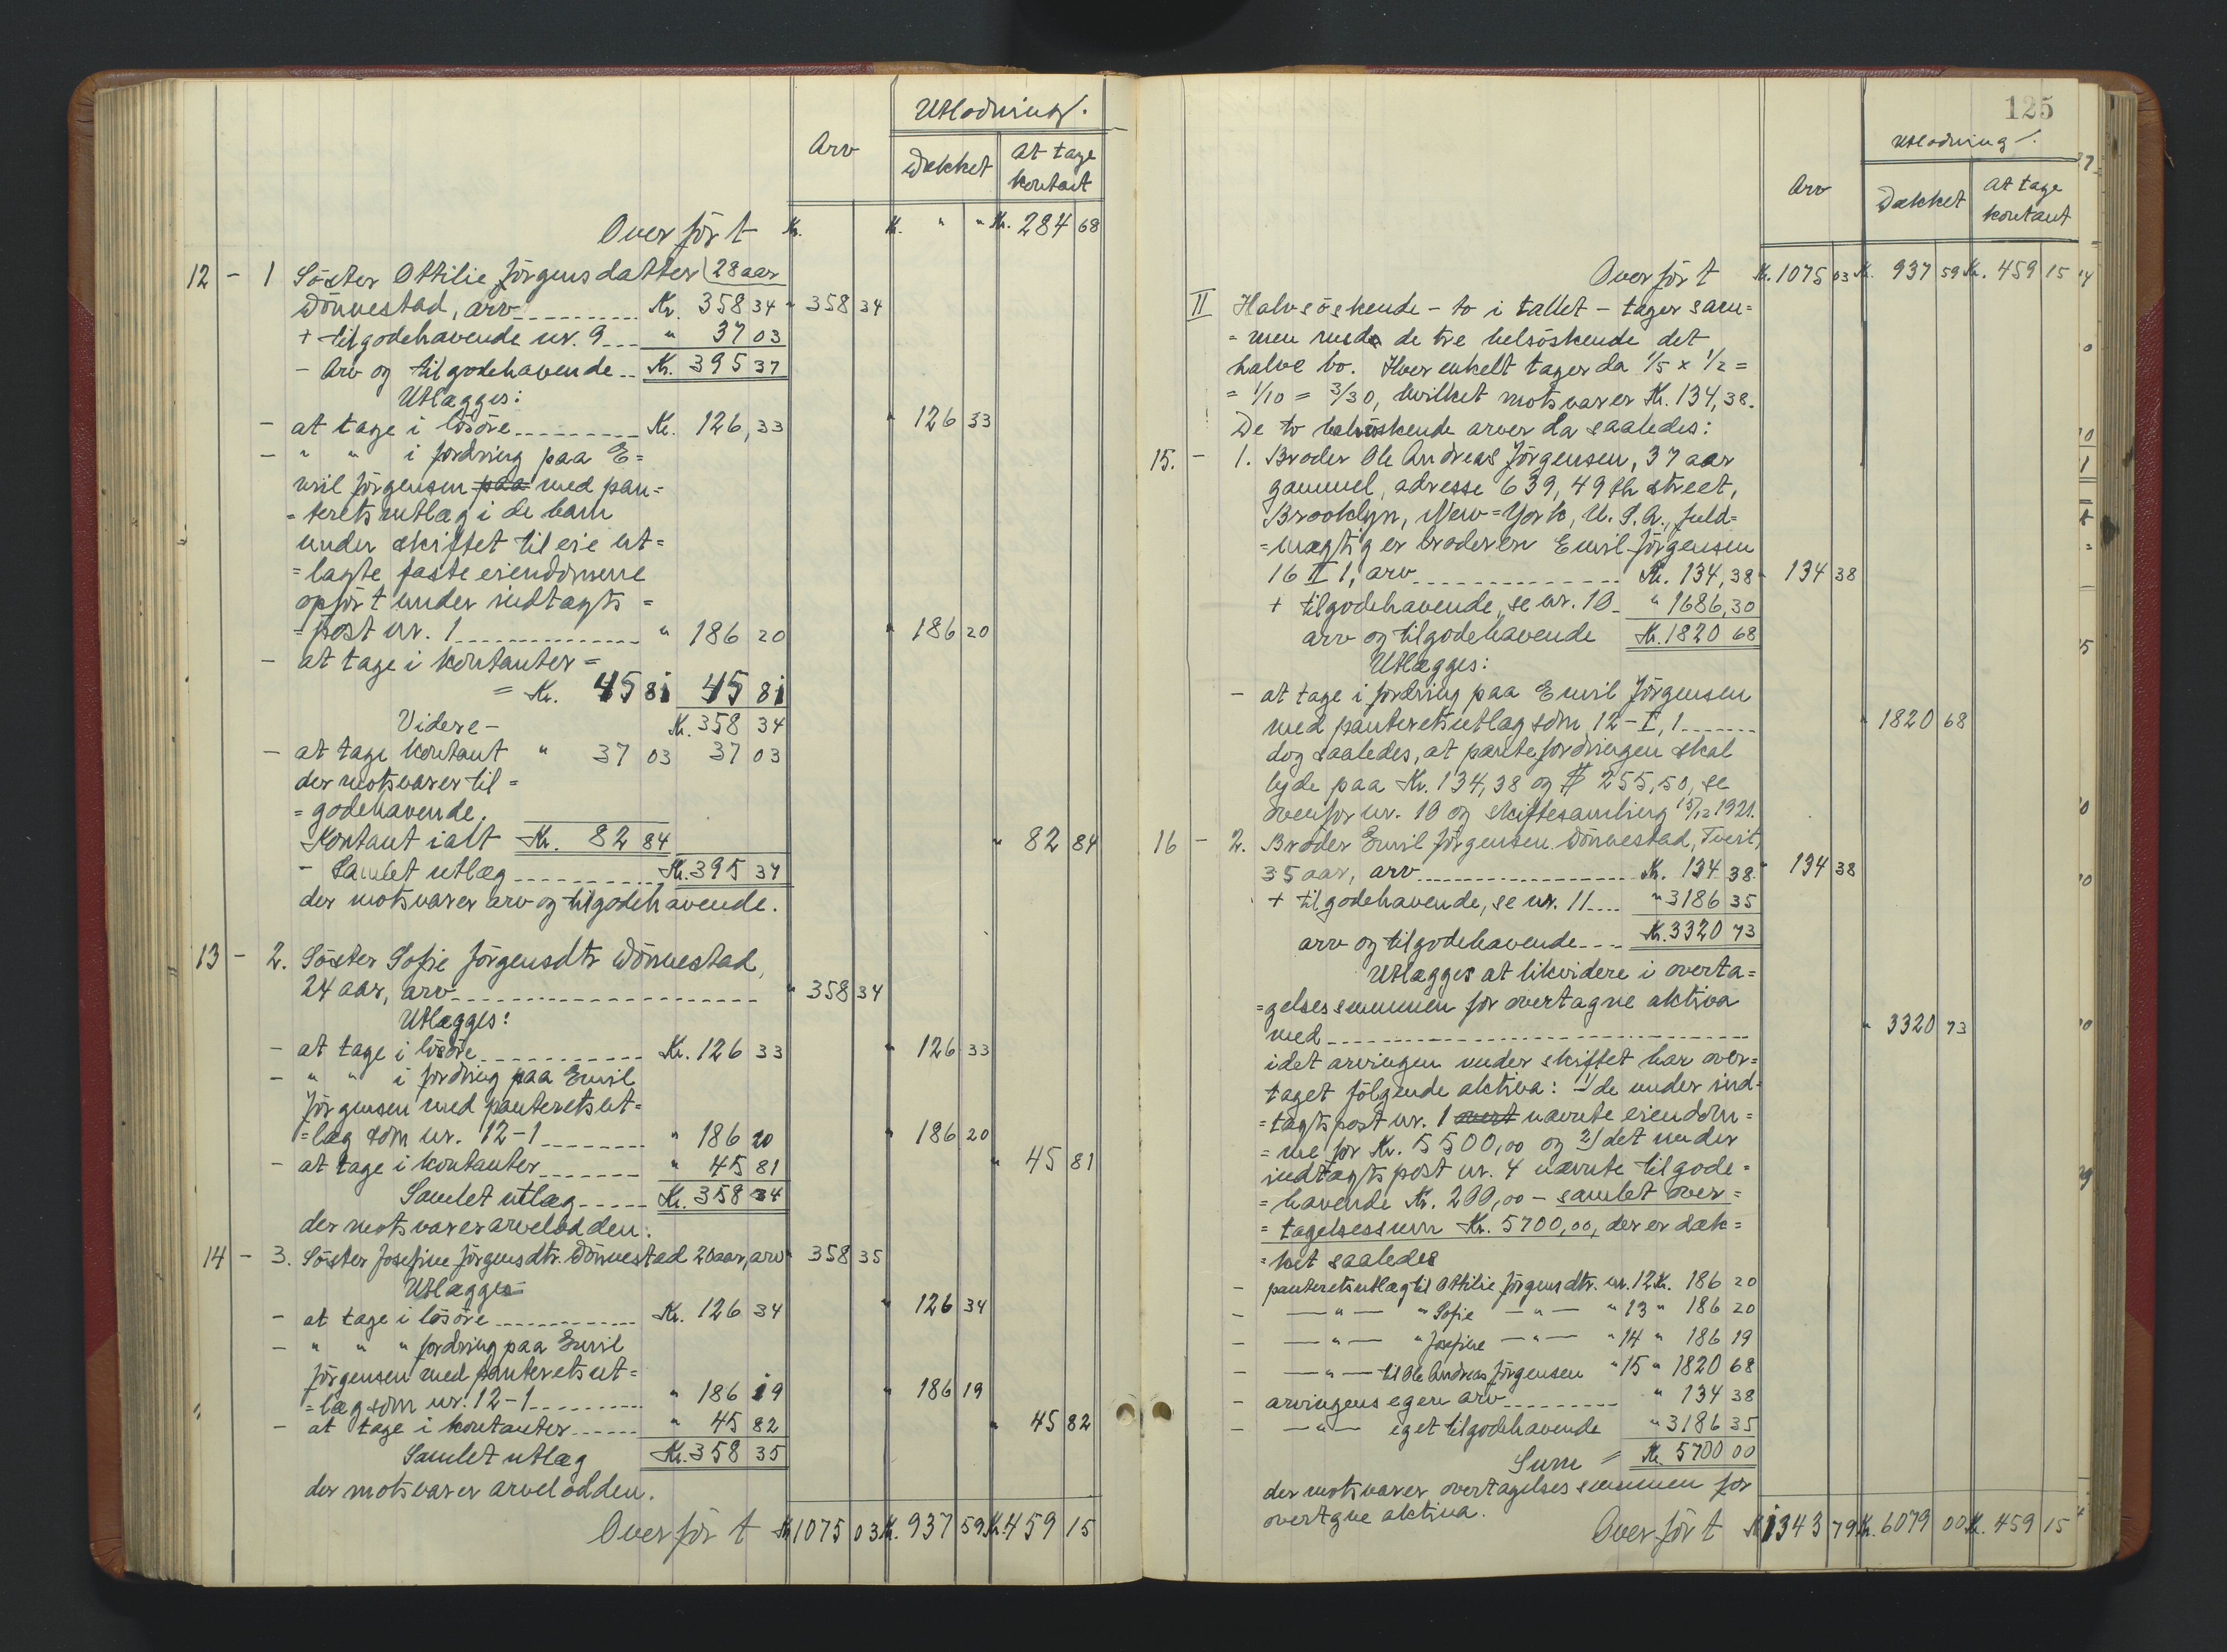 Utlodning.
Arv
Dækket
At tage
kontant
Overført Kr. Kr. " " Kr. 284 68
12 - 1 Söster Ottilie Jörgensdatter 28 aar
Dönnestad, arv Kr. 358 34 " 358 34
+ tilgodehavende nr. 9 " 37 03
- Arv og tilgodehavende Kr. 395 37
Utlægges:
- at tage i lösöre Kr. 126,33 " 126 33
- " " i fordring paa E=
mil Jörgensen paa med pan=
=teretsutlæg i de ham
under skiftet til eie ut=
=lagte faste eiendomme
opfört under indtægts=
=post nr. 1 " 186 20 " 186 20
- at tage i kontanter =
= Kr. 45 81 45 81
Videre - Kr. 358 34
- at tage kontant " 37 03 37 03
der motsvarer til=
=godehavende.
Kontant ialt Kr. 82 84 " 82 84
- Samlet utlæg Kr. 395 37
der motsvarer arv og tilgodehavende.
13 - 2. Söster Sofie Jörgensdtr Dönnestad,
24 aar, arv " 358 34
Utlægges:
- at tage i lösöre Kr. 126 33 " 126 33
- " " i fordring paa Emil
Jörgensen med panteretsut=
=læg som nr. 12-1 " 186 20 " 186 20
- at tage i kontanter " 45 81 " 45 81
Samlet utlæg Kr. 358 34
der motsvarer arvelodden.
14 - 3. Söster Josefine Jörgensdtr. Dönnestad 20 aar, arv " 358 35
Utlægges
- at tage i lösöre Kr. 126 34 " 126 34
- " " " fordring paa Emil
Jörgensen med panteretsut=
=læg som nr. 12-1 " 186 19 " 186 19
- at tage i kontanter " 45 82 " 45 82
Samlet utlæg Kr. 358 35
der motsvarer arvelodden.
Overfört Kr. 1075 03 Kr. 937 59 Kr. 459 15
125
Utlodning.
Arv
Dækket
At tage
kontant
Overfört Kr. 1075 03 Kr. 937 59 Kr. 459 15
II Halvsöskende - to i tallet - tager sam=
=men med de tre helsöskende det
halve bo. Hver enkelt tager da 1/5 x 1/2 =
= 1/10 = 3/30, hvilket motsvarer Kr. 134,38.
De to halvsöskende arver da saaledes:
15. - 1. Broder Ole Andreas Jörgensen, 37 aar
gammel, adresse 639, 49th street,
Brooklyn, New=York, U.S.A., fuld=
=mægtig er broderen Emil Jörgensen
16 II 1, arv Kr. 134,38 " 134 38
+ tilgodehavende, se nr. 10 " 1686,30
arv og tilgodehavende Kr. 1820 68
Utlægges:
- at tage i fordring paa Emil Jörgensen
med panteretsutlæg som 12-I,1 " 1820 68
dog saaledes, at pantefordringen skal
lyde paa Kr. 134,38 og $ 255,50, se
ovenfor nr. 10 og skiftesamling 15/12 1921.
16 - 2. Broder Emil Jörgensen Dönnestad, Tveit,
35 aar, arv Kr. 134 38 " 134 38
+ tilgodehavende, se nr. 11 " 3186 35
arv og tilgodehavende Kr. 3320 73
Utlægges at likvidere i overta=
=gelsessummen for overtagne aktiva
med " 3320 73
idet arvingen under skiftet har over=
taget fölgende aktiva: 1/ de under ind=
=tægtspost nr. 1 overt nævnte eiendom=
=me for Kr. 5500,00 og 2/ det under
indtægtspost nr. 4 nævnte tilgode=
=havende Kr. 200,00 - samlet over=
=tagelsessum Kr. 5700,00, der er dæk=
=ket saaledes
- panteretsutlæg til Ottilie Jörgensdtr. nr. 12 Kr. 186 20
- — " — " Sofie — " — " 13 " 186 20
- — " — " Josefine — " — " 14 " 186 19
- — " — til Ole Andreas Jörgensen " 15 " 1820 68
- arvingens egen arv " 134 38
- — " — eget tilgodehavende " 3186 35
Sum = Kr. 5700 00
der motsvarer overtagelsessummen for
overtagne aktiva.
Overfört Kr. 1343 79 Kr. 6079 00 Kr. 459 15